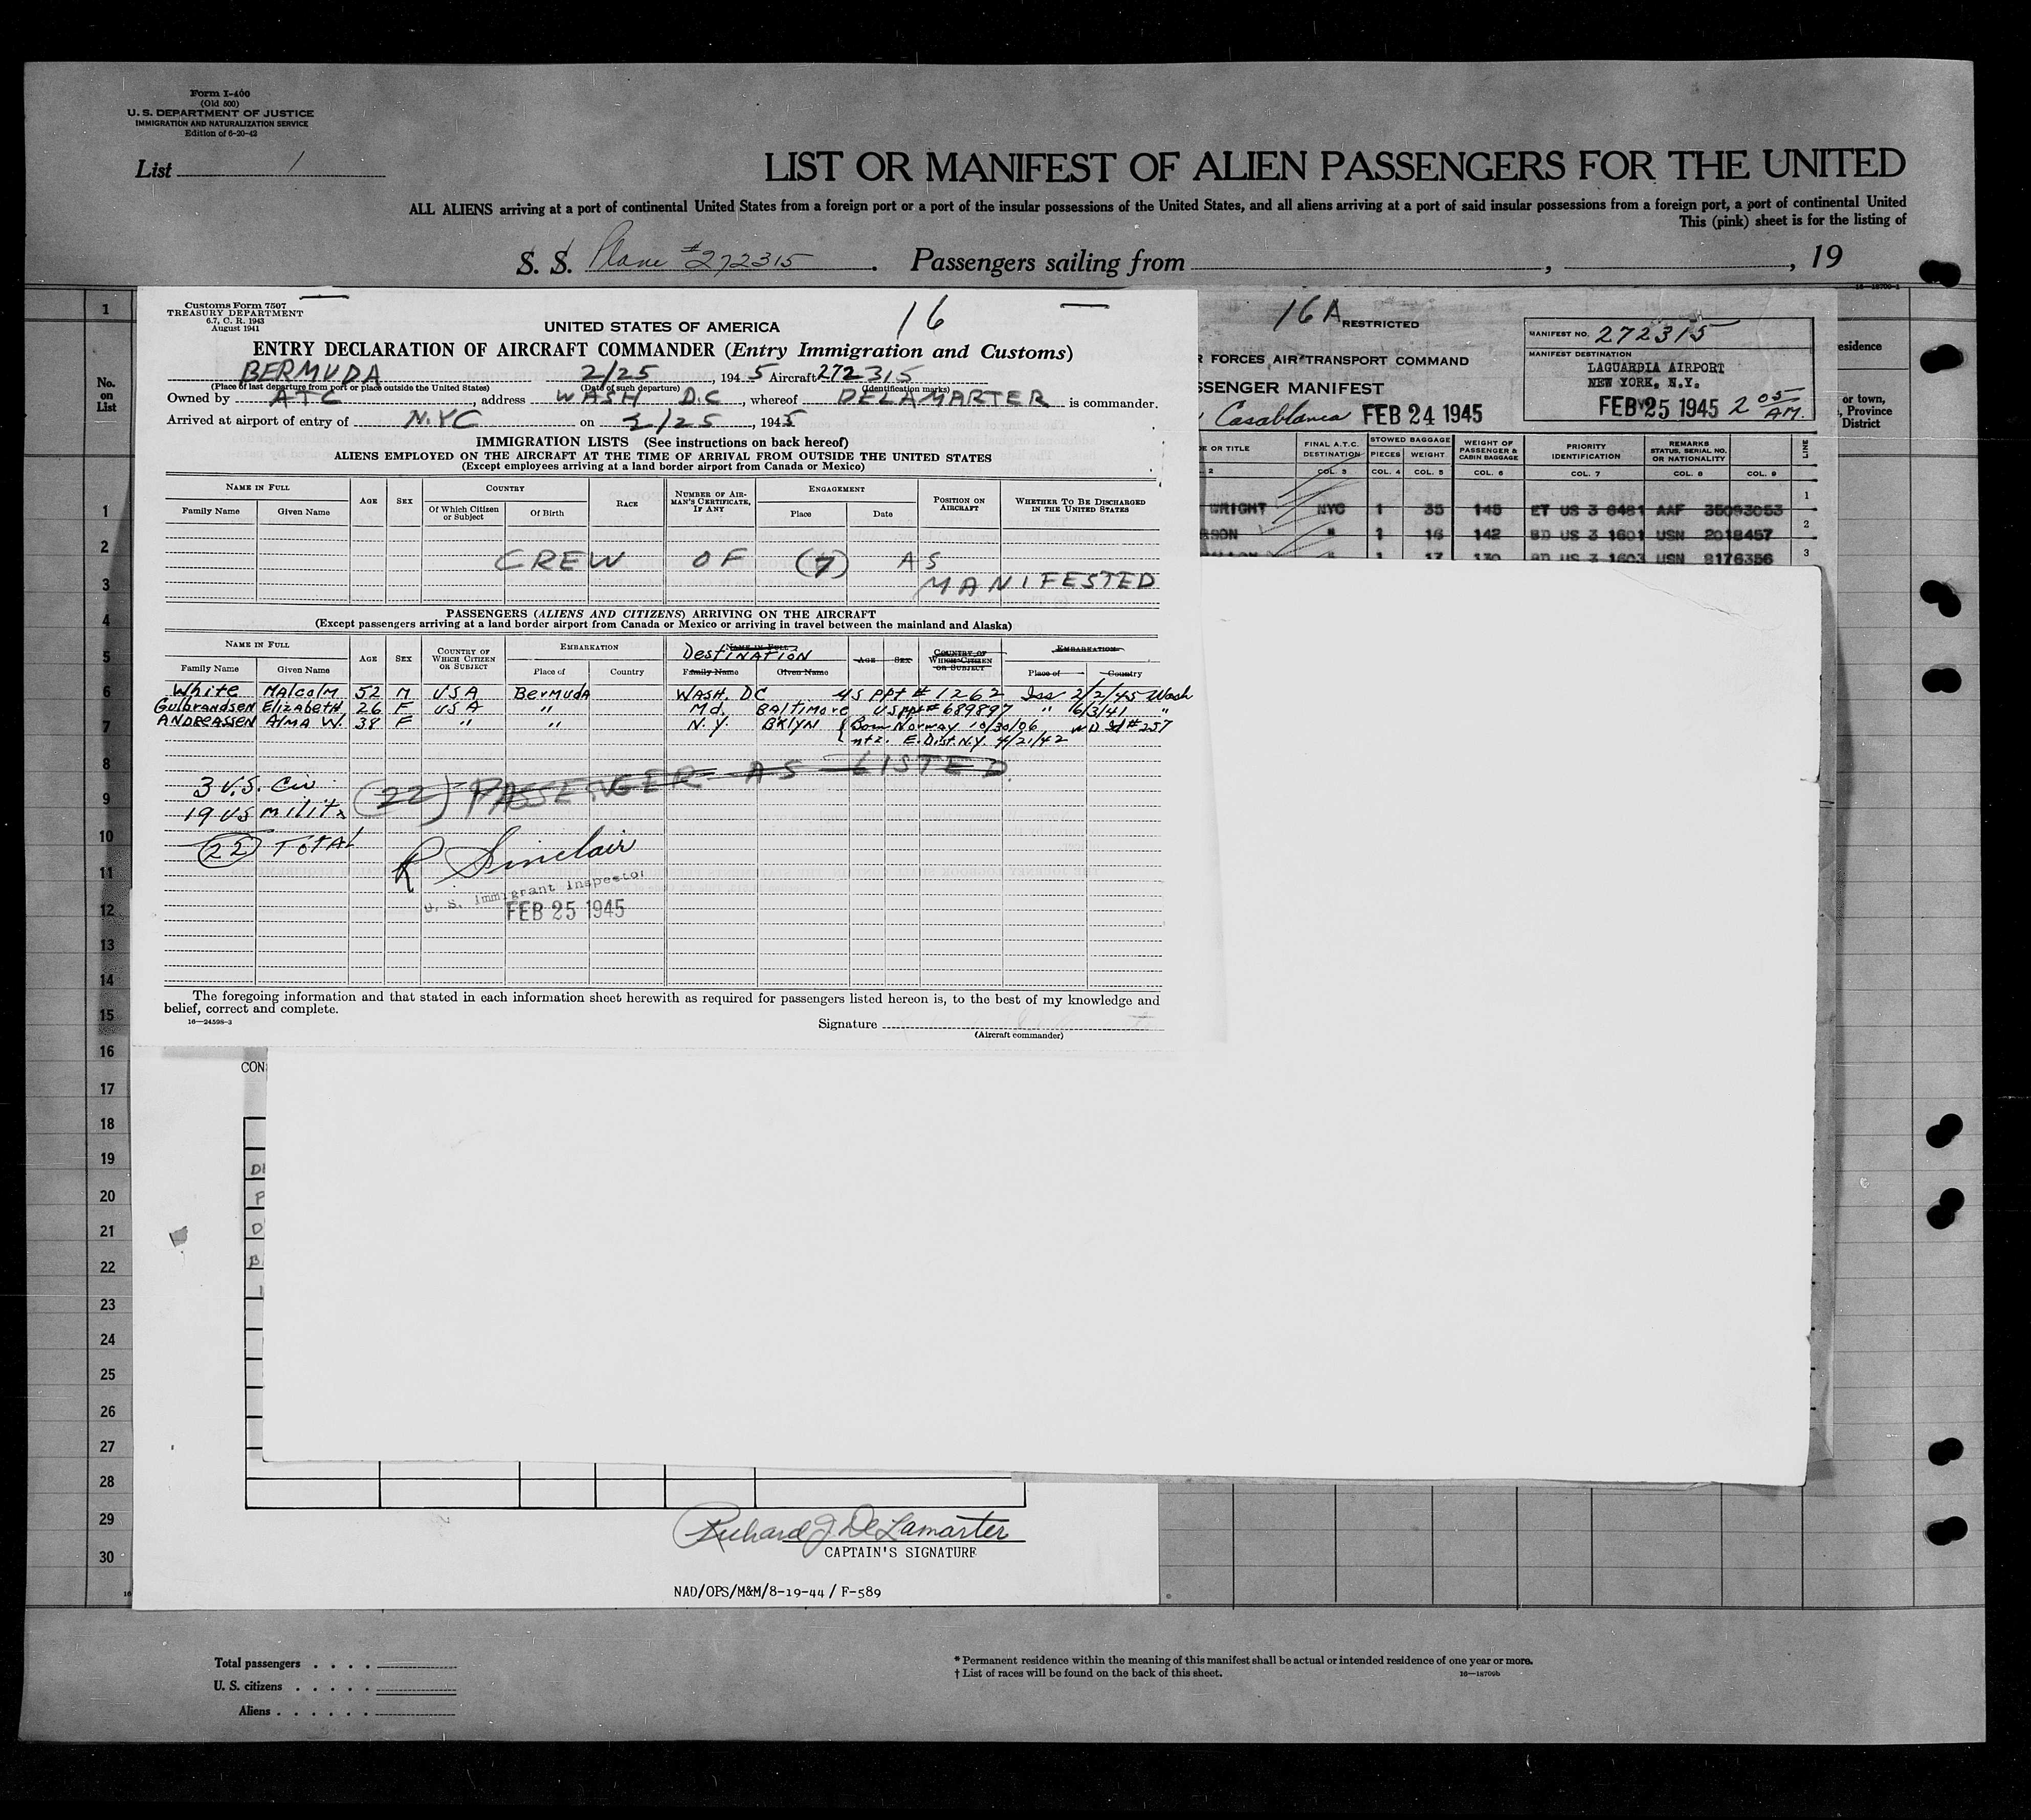 Form I-400
(Old 500)
U. S. DEPARTMENT OF JUSTICE
IMMIGRATION AND NATURALIZATION SERVICE
Edition of 6-20-42
List 1
LIST OR MANIFEST OF ALIEN PASSENGERS FOR THE UNITED
ALL ALIENS arriving at a port of continental United States from a foreign port or a port of the insular possessions of the United States, and all aliens arriving at a port of said insular possessions from a foreign port, a port of continental United
This (pink) sheet is for the listing of
S. S. Plane #272315. Passengers sailing from , , 19
Customs Form 7507
TREASURY DEPARTMENT
6.7, C. R. 1943
August 1941
16
UNITED STATES OF AMERICA
ENTRY DECLARATION OF AIRCRAFT COMMANDER (Entry Immigration and Customs)
BERMUDA 2/25, 1945 Aircraft 272315
(Place of last departure from port or place outside the United States) (Date of such departure) (Identification marks)
Owned by ATC, address WASH D.C, whereof DELAMARTER is commander.
Arrived at airport of entry of N.Y.C on 2/25, 1945
IMMIGRATION LISTS (See instructions on back hereof)
ALIENS EMPLOYED ON THE AIRCRAFT AT THE TIME OF ARRIVAL FROM OUTSIDE THE UNITED STATES
(Except employees arriving at a land border airport from Canada or Mexico)
NAME IN FULL AGE SEX COUNTRY RACE NUMBER OF AIRMAN'S CERTIFICATE, IF ANY ENGAGEMENT POSITION ON AIRCRAFT WHETHER TO BE DISCHARGED IN THE UNITED STATES
Family Name Given Name Of Which Citizen or Subject Of Birth Place Date
CREW OF (7) AS
MANIFESTED
PASSENGERS (ALIENS AND CITIZENS) ARRIVING ON THE AIRCRAFT
(Except passengers arriving at a land border airport from Canada or Mexico or arriving in travel between the mainland and Alaska)
NAME IN FULL AGE SEX COUNTRY OF WHICH CITIZEN OR SUBJECT EMBARKATION NAME IN FULL DESTINATION AGE SEX COUNTRY OF WHICH CITIZEN OR SUBJECT EMBARKATION
Family Name Given Name Place of Country Family Name Given Name Place of Country
White Malcolm 52 M USA Bermuda WASH. DC US ppt # 1262 Iss 2/2/45 Wash
Gulbrandsen Elizabeth 26 F USA " Md. Baltimore US ppt # 689897 " 6/3/41 "
ANDREASSEN ALMA W. 38 F " " N.Y. BKLYN {Born Norway 10/30/06 WD Id # 257
ntz. E. Dist. N.Y. 4/21/42
(22) PASSENGER AS LISTED
3 U.S. Civ
19 US Milit
(22) TOTAL
R Sinclair
U. S. Immigrant Inspector
FEB 25 1945
The foregoing information and that stated in each information sheet herewith as required for passengers listed hereon is, to the best of my knowledge and
belief, correct and complete.
16—24598-3
Signature
(Aircraft commander)
16A RESTRICTED
R FORCES AIR TRANSPORT COMMAND
SSENGER MANIFEST
Casablanca FEB 24 1945
MANIFEST NO. 272315
MANIFEST DESTINATION
LAGUARDIA AIRPORT
NEW YORK, N.Y.
FEB 25 1945 2 05 AM.
E OR TITLE FINAL A.T.C. DESTINATION STOWED BAGGAGE PIECES WEIGHT WEIGHT OF PASSENGER & CABIN BAGGAGE PRIORITY IDENTIFICATION REMARKS STATUS, SERIAL NO. OR NATIONALITY LINE
2 COL. 3 COL. 4 COL. 5 COL. 6 COL. 7 COL. 8 COL. 9
WRIGHT NYC 1 35 145 ET US 3 6481 AAF 35093053 1
RSON " 1 16 142 BD US 3 1601 USN 2018457 2
1 17 130 BD US 3 1603 USN 8176356 3
esidence
or town,
, Province
District
No.
on
List
1
1
2
3
4
5
6
7
8
9
10
11
12
13
14
15
16
17
18
19
20
21
22
23
24
25
26
27
28
29
30
CON
Richard J DeLamarter
CAPTAIN'S SIGNATURE
NAD/OPS/M&M/8-19-44 / F-589
Total passengers
U. S. citizens
Aliens
* Permanent residence within the meaning of this manifest shall be actual or intended residence of one year or more.
† List of races will be found on the back of this sheet.
16—18709b